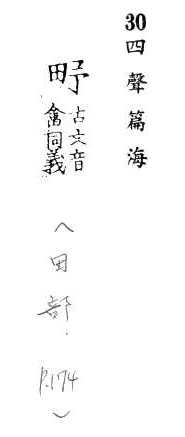 30四聲篇海
野古文音
畬同義
︵田部．P.174︶